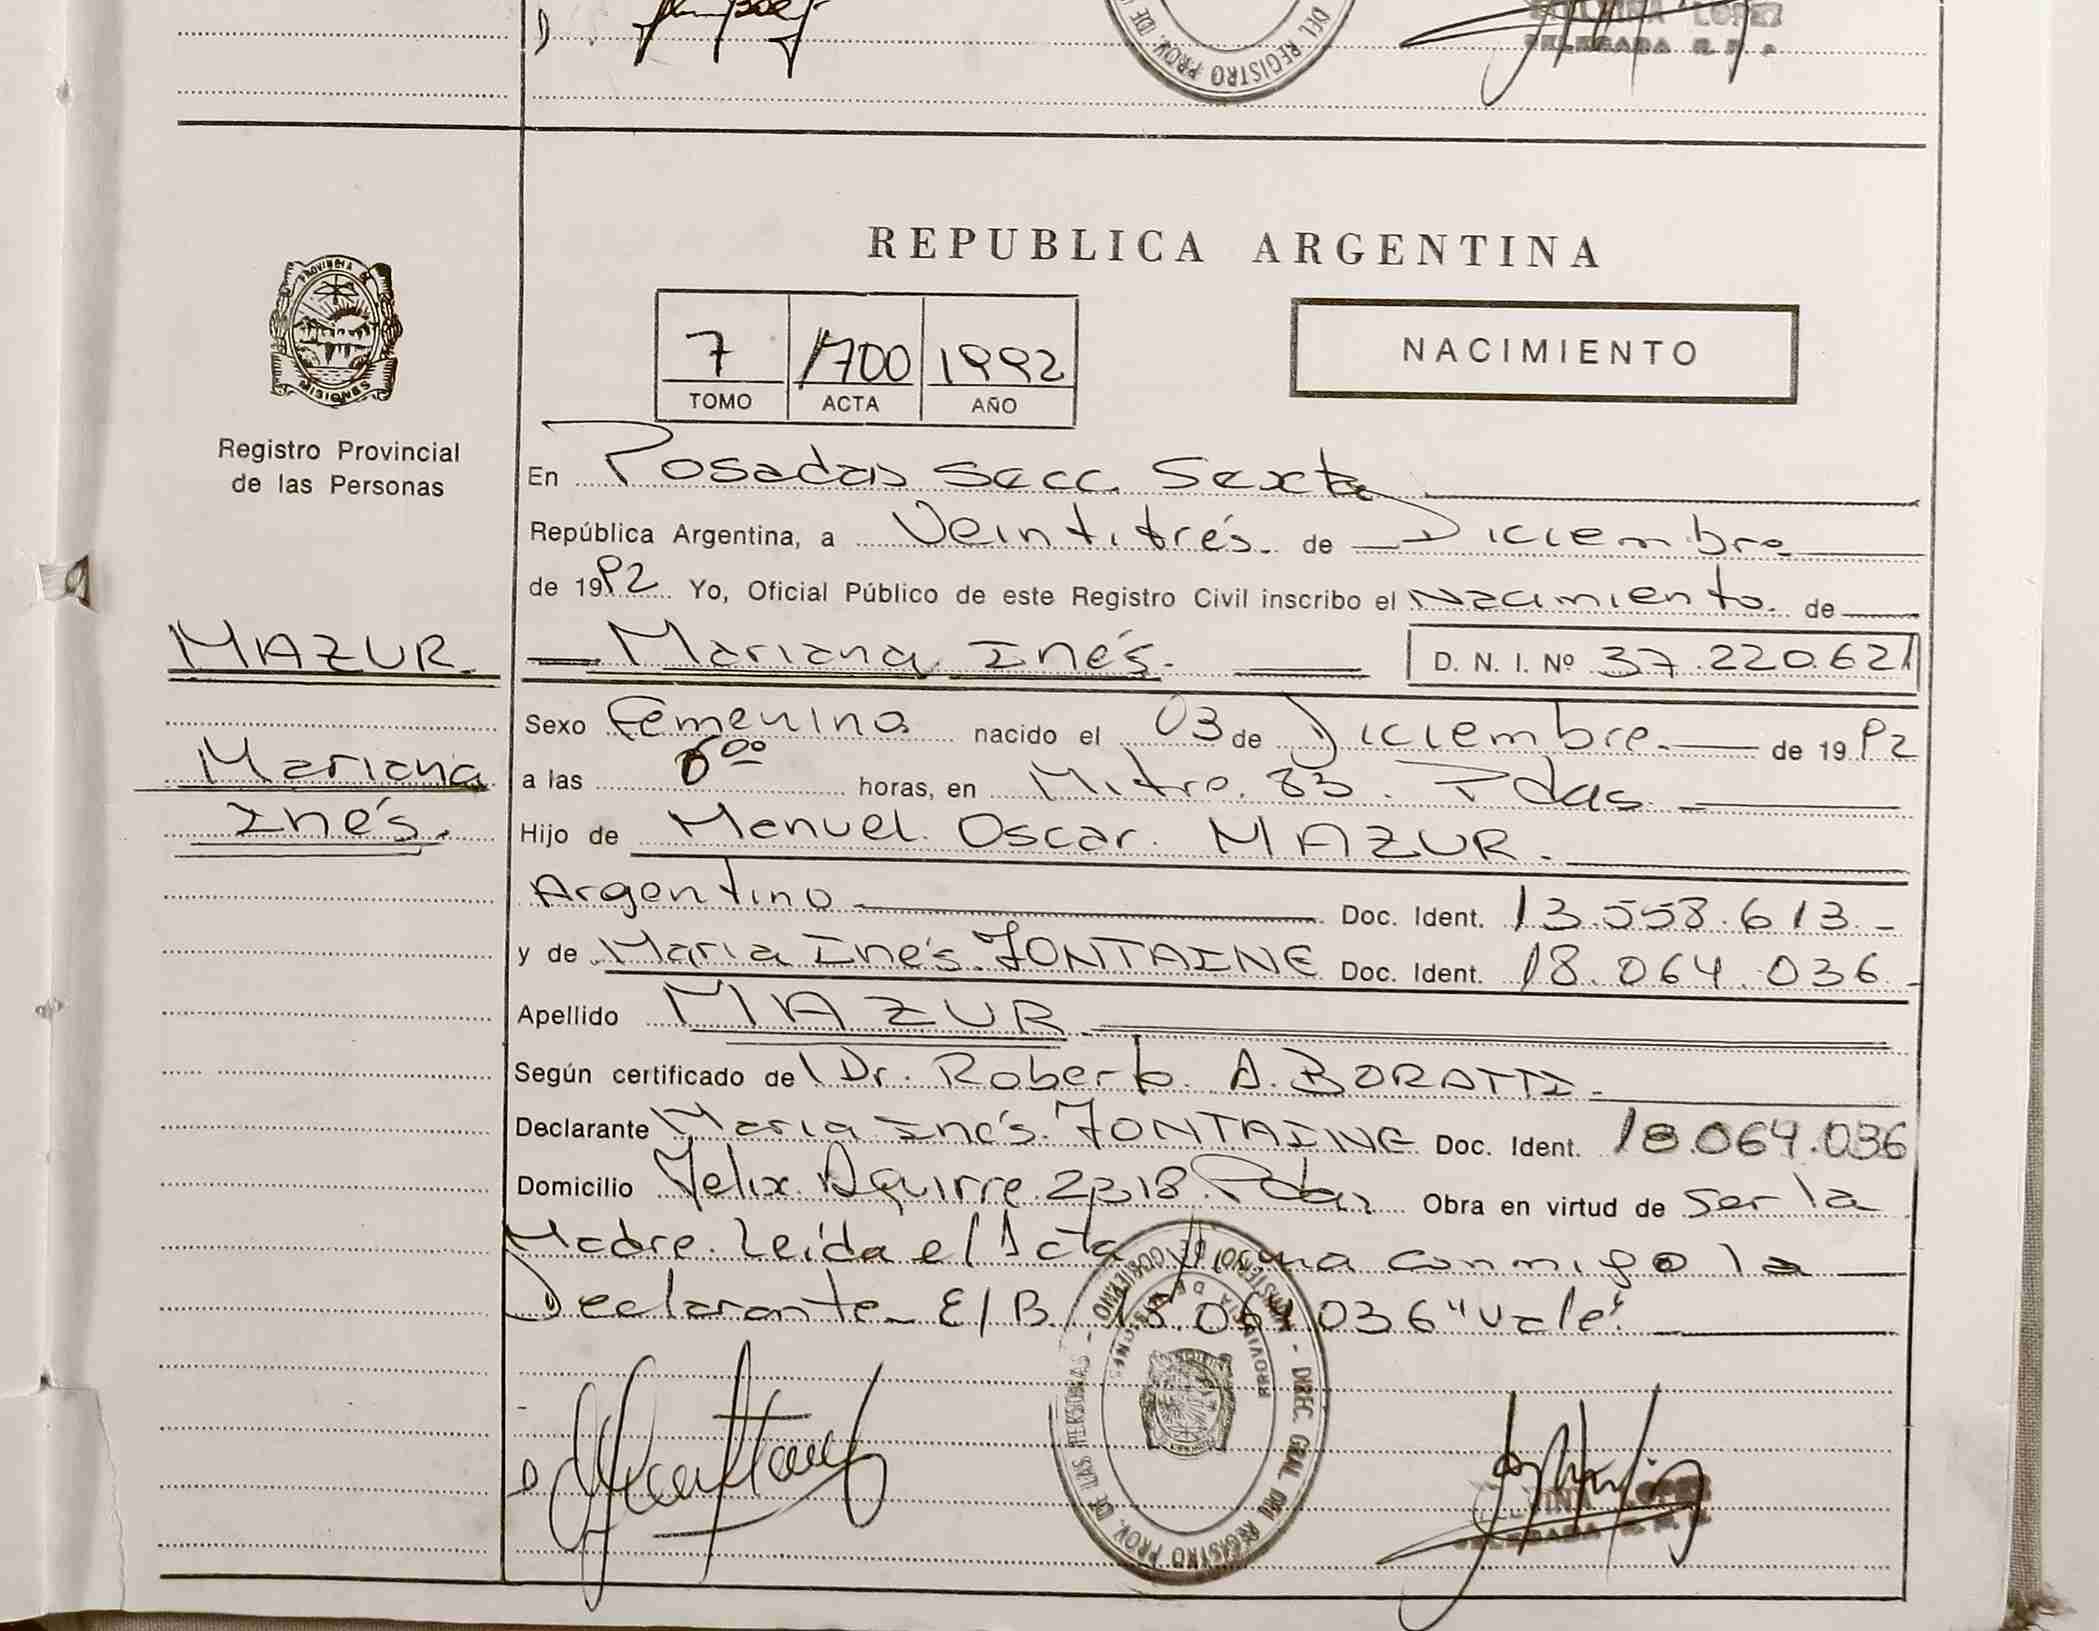 DEL REGISTRO PROV. DE
LOPEZ
DELEGADA R. P.
PROVINCIA DE
MISIONES
Registro Provincial
de las Personas
REPUBLICA ARGENTINA
7 1700 1992
TOMO ACTA AÑO
NACIMIENTO
En Posadas Secc. Sexta
República Argentina, a Veintitrés de Diciembre
de 1992 Yo, Oficial Público de este Registro Civil inscribo el Nacimiento de
MAZUR
Mariana Inés. D. N. I. Nº 37.220.621
Sexo Femenino nacido el 03 de Diciembre. de 1992
Mariana
Inés.
a las 6⁰⁰ horas, en Mitre. 83. Pdas.
Hijo de Manuel Oscar MAZUR.
Argentino Doc. Ident. 13.558.613.-
y de Maria Inés FONTAINE Doc. Ident. 18.064.036.-
Apellido MAZUR
Según certificado de Dr. Roberto A. BORATTI.
Declarante Maria Inés. FONTAINE Doc. Ident. 18.064.036
Domicilio Felix Aguirre 2318. Pdas Obra en virtud de Ser la
Madre. Leída el Acta firma conmigo la
Declarante- E/B. 18.064.036 "vale".
DIREC. GRAL. DEL REGISTRO PROV. DE LAS PERSONAS - MINISTERIO DE GOBIERNO -
PROVINCIA DE MISIONES
LOPEZ
DELEGADA